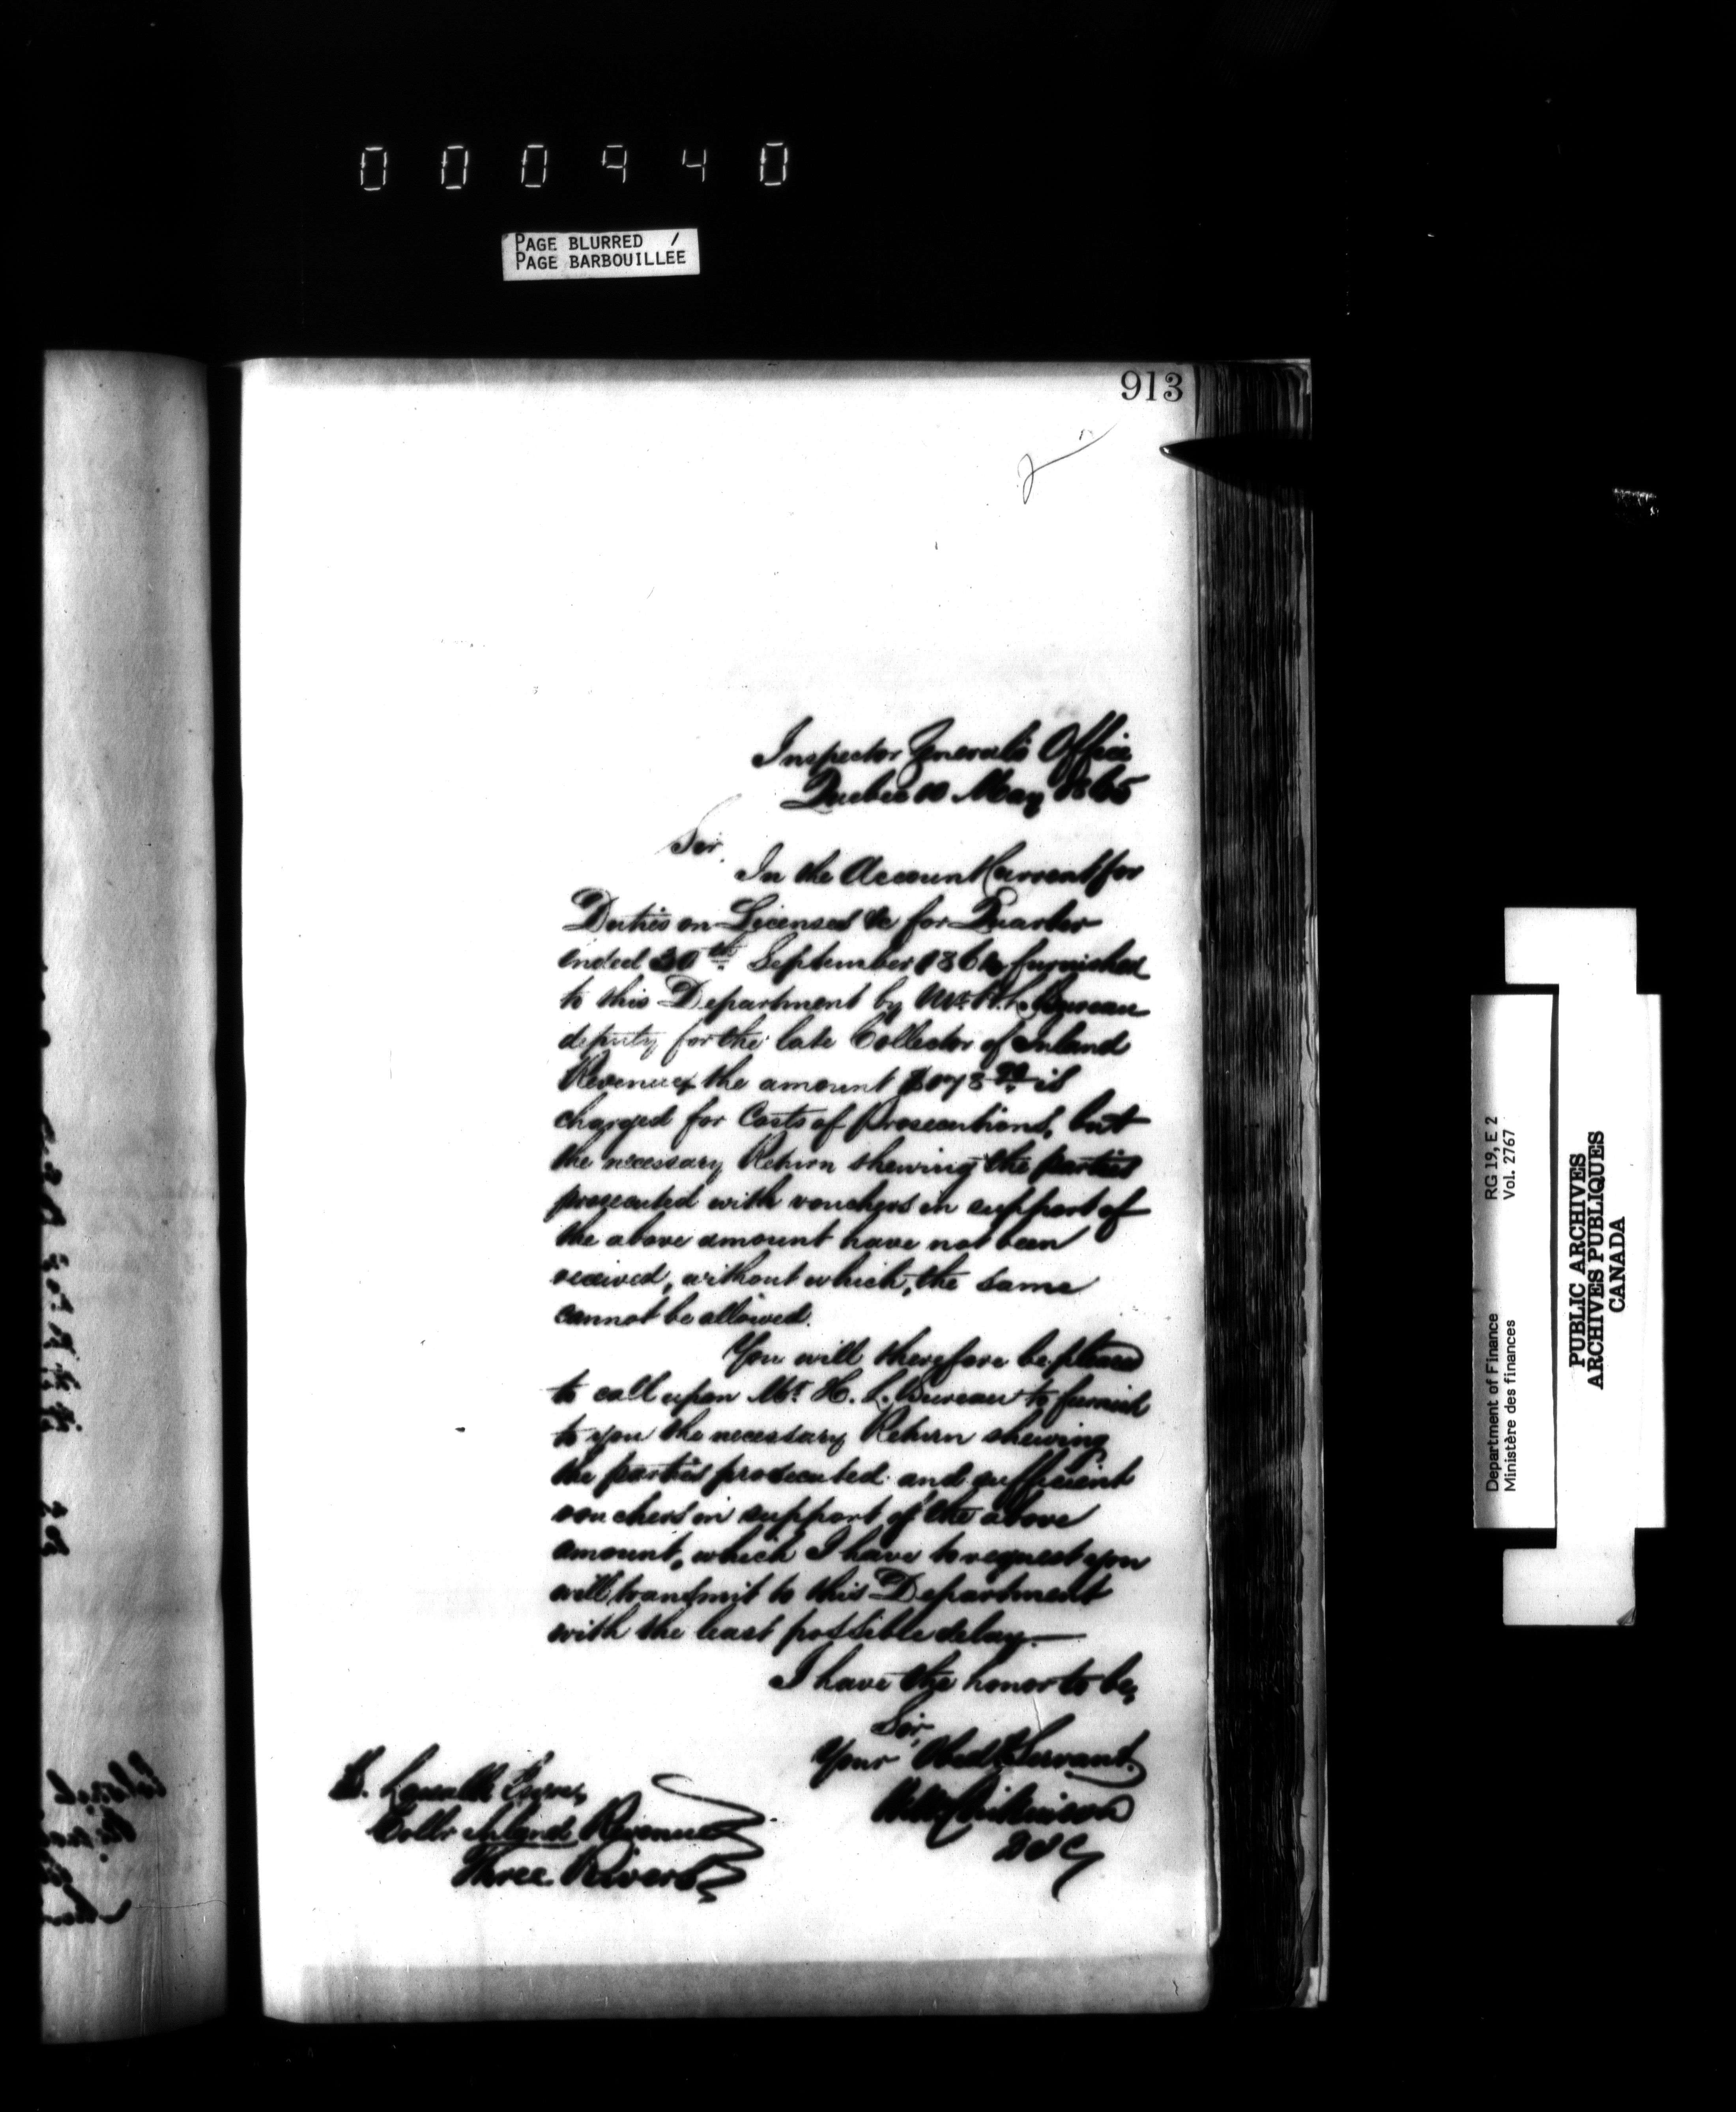 000940
PAGE BLURRED /
PAGE BARBOUILLÉE
913
Inspector General's Office
Quebec 10 May 1865
Sir,
In the Account Current for
Duties on Licenses &c for Quarter
ended 30th September 1864 furnished
to this Department by Mr. H. L. Bureau
deputy for the late Collector of Inland
Revenue, the amount is
charged for Costs of Prosecutions, but
the necessary Return shewing the parties
prosecuted with vouchers in support of
the above amount have not been
received, without which, the same
cannot be allowed.
You will therefore be pleased
to call upon Mr. H. L. Bureau to furnish
to you the necessary Return shewing
the parties prosecuted and sufficient
vouchers in support of the above
amount, which I have to request you
will transmit to this Department
with the least possible delay.—
I have the honor to be,
Sir,
Your Obedt. Servant.
Collr Inland Revenue
Three Rivers
Department of Finance RG 19, E 2
Ministère des finances Vol. 2767
PUBLIC ARCHIVES
ARCHIVES PUBLIQUES
CANADA